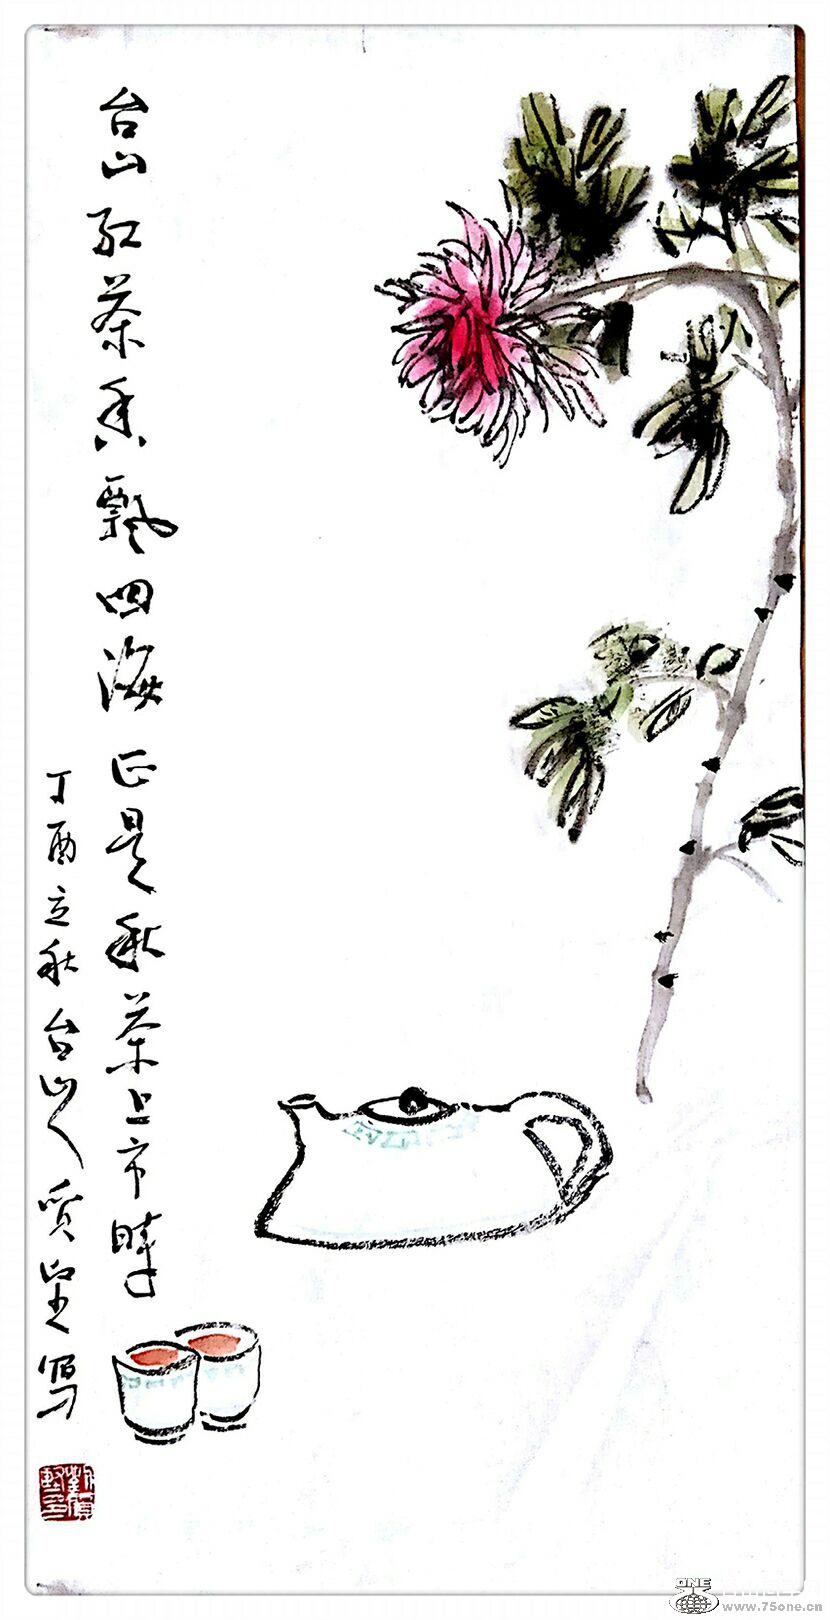 台山红茶香飘四海正是秋茶上市时
丁酉立秋台山人质坚写
ONE
www.75one.cn